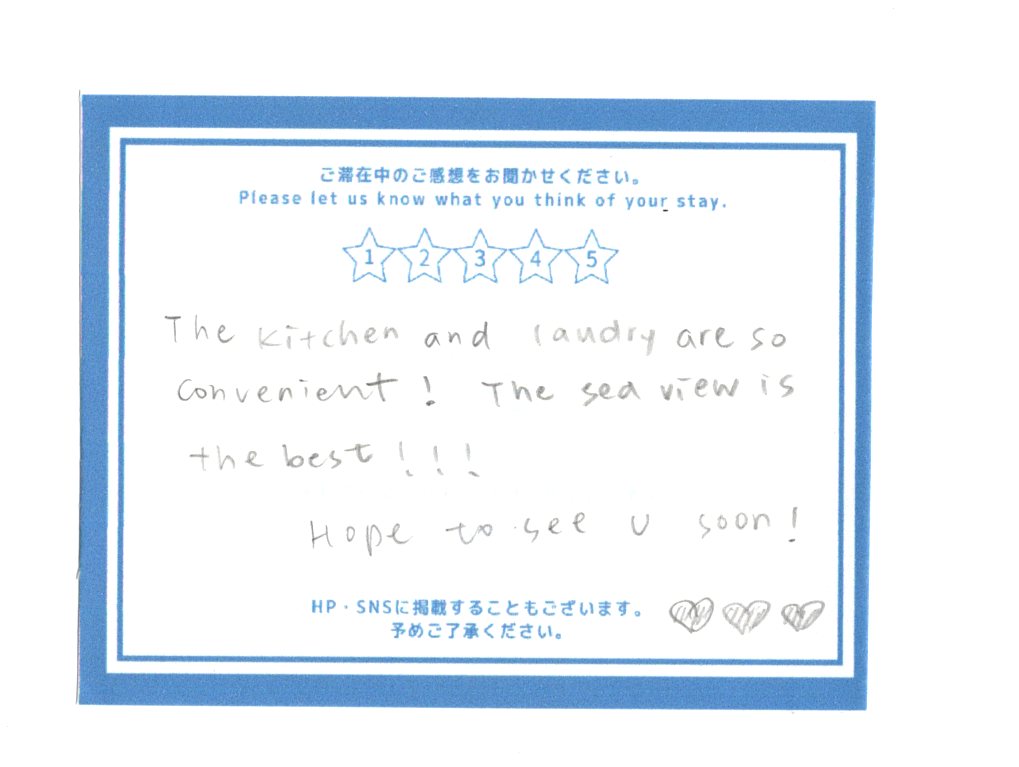 ご滞在中のご感想をお聞かせください。
Please let us know what you think of your stay.
1 2 3 4 5
The kitchen and laudry are so
convenient! The sea view is
the best!!!
Hope to see u soon!
HP・SNSに掲載することもございます。
予めご了承ください。